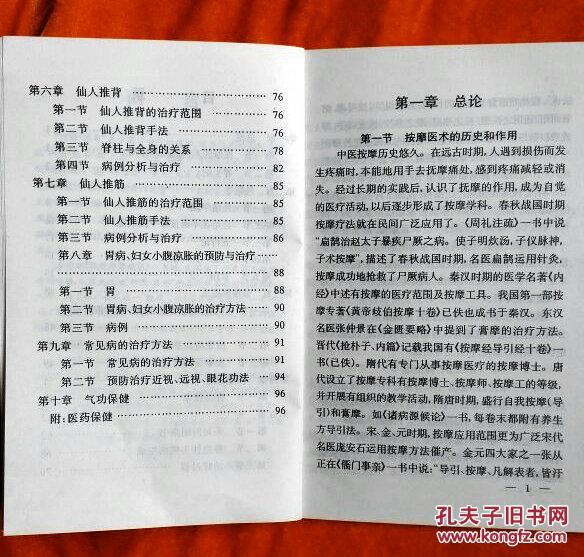 第六章 仙人推背 …………………… 76
第一节 仙人推背的治疗范围 ………… 76
第二节 仙人推背手法 ……………… 76
第三节 脊柱与全身的关系 ………… 78
第四节 病例分析与治疗 …………… 82
第七章 仙人推筋 …………………… 85
第一节 仙人推筋的治疗范围 ………… 85
第二节 仙人推筋手法 ……………… 85
第三节 病例分析与治疗 …………… 86
第八章 胃病、妇女小腹凉胀的预防与治疗 ……
…………………… 88
第一节 胃 …………………… 88
第二节 胃病、妇女小腹凉胀的治疗方法 … 90
第三节 病例 …………………… 90
第九章 常见病的治疗方法 …………… 91
第一节 常见病的治疗方法 ………… 91
第二节 预防治疗近视、远视、眼花功法 … 94
第十章 气功保健 …………………… 96
附:医药保健 …………………… 96
第一章 总论
第一节 按摩医术的历史和作用
中医按摩历史悠久。在远古时期,人遇到损伤而发
生疼痛时,本能地用手去抚摩痛处,感到疼痛减轻或消
失。经过长期的实践后,认识了抚摩的作用,成为自觉
的医疗活动,以后逐步形成了按摩学科。春秋战国时期
按摩疗法就在民间广泛应用了。《周礼注疏》一书中说
“扁鹊治赵太子暴疾尸厥之病。使子明炊汤,子仪脉神,
子术按摩”,描述了春秋战国时期,名医扁鹊运用针灸、
按摩成功地抢救了尸厥病人。秦汉时期的医学名著《内
经》中述有按摩的医疗范围及按摩工具。我国第一部按
摩专著《黄帝歧伯按摩十卷》已佚也成书于秦汉。东汉
名医张仲景在《金匮要略》中提到了膏摩的治疗方法。
晋代《抢朴子、内篇》记载我国有《按摩经导引经十卷》一
书(已佚)。隋代有专门从事按摩医疗的按摩博士。唐
代设立了按摩专科有按摩博士、按摩师、按摩工的等级,
并开展有组织的教学活动,隋唐时期,盛行自我按摩(导
引)和膏摩。如《诸病源候论》一书,每卷末都附有养生
方导引法。宋、金、元时期,按摩应用范围更为广泛宋代
名医庞安石运用按摩方法催产。金元四大家之一张从
正在《儒门事亲》一书中说:“导引、按摩、凡解表者,皆汗
— 1 —
孔夫子旧书网